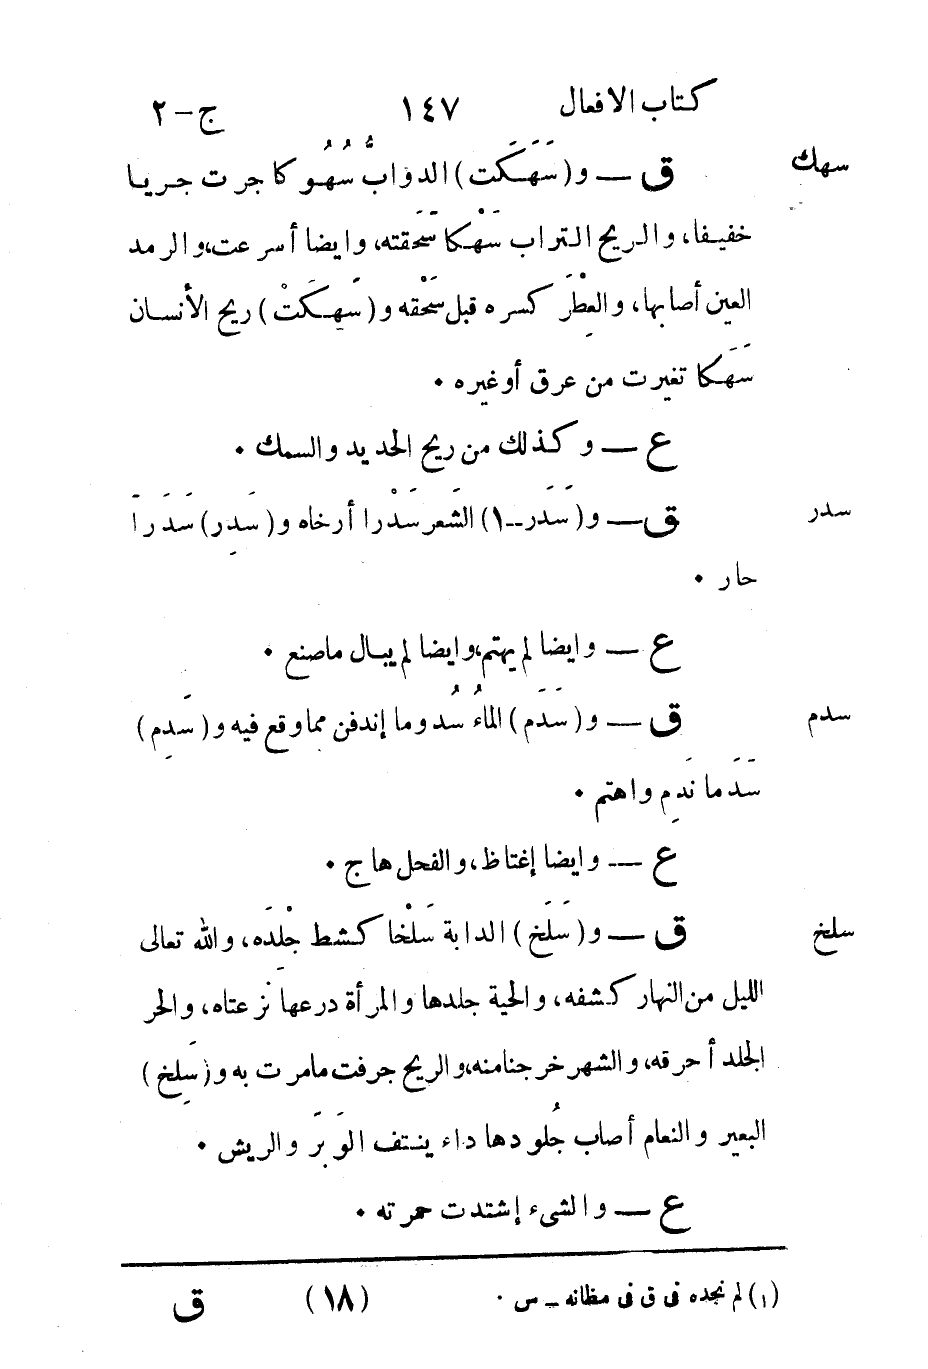 كتاب الافعال ١٤٧ ج-٢
سهك ق — و(سَهَكَت) الدوابُّ سُهُوكا جرت جريا
خفيفا، والريح التراب سَهْكا سَحَقته، وايضا أسرعت، والرمد
العين أصابها، والعِطْرَ كسره قبل سَحْقه و(سَهِكَتْ) ريح الأنسان
سَهَكا تغيرت من عرق أوغيره •
ع — وكذلك من ريح الحديد والسمك •
سدر ق — و(سَدَر-١) الشَعر سَدْرا أرخاه و(سَدِر) سَدَراً
حار •
ع — وايضا لم يهتم، وايضا لم يبال ماصنع •
سدم ق — و(سَدَم) الماءُ سُدوما إندفن مماوقع فيه و(سَدِم)
سَدَما نَدِم واهتم •
ع — وايضا إغتاظ، والفحل هاج •
سلخ ق — و(سَلَخ) الدابة سَلْخا كشط جِلْدَه، والله تعالى
الليل من النهار كشفه، والحية جلدها والمرأة درعها نزعتاه، والحر
الجلد أحرقه، والشهر خرجنامنه، والريح جرفت مامرت به و(سَلِخ)
البعير والنعام أصاب جُلودها داء ينتف الوَبَر والريش •
ع — والشىء إشتدت حمرته •
(١) لم نجده فى ق فى مظانه — س •
(١٨) ق